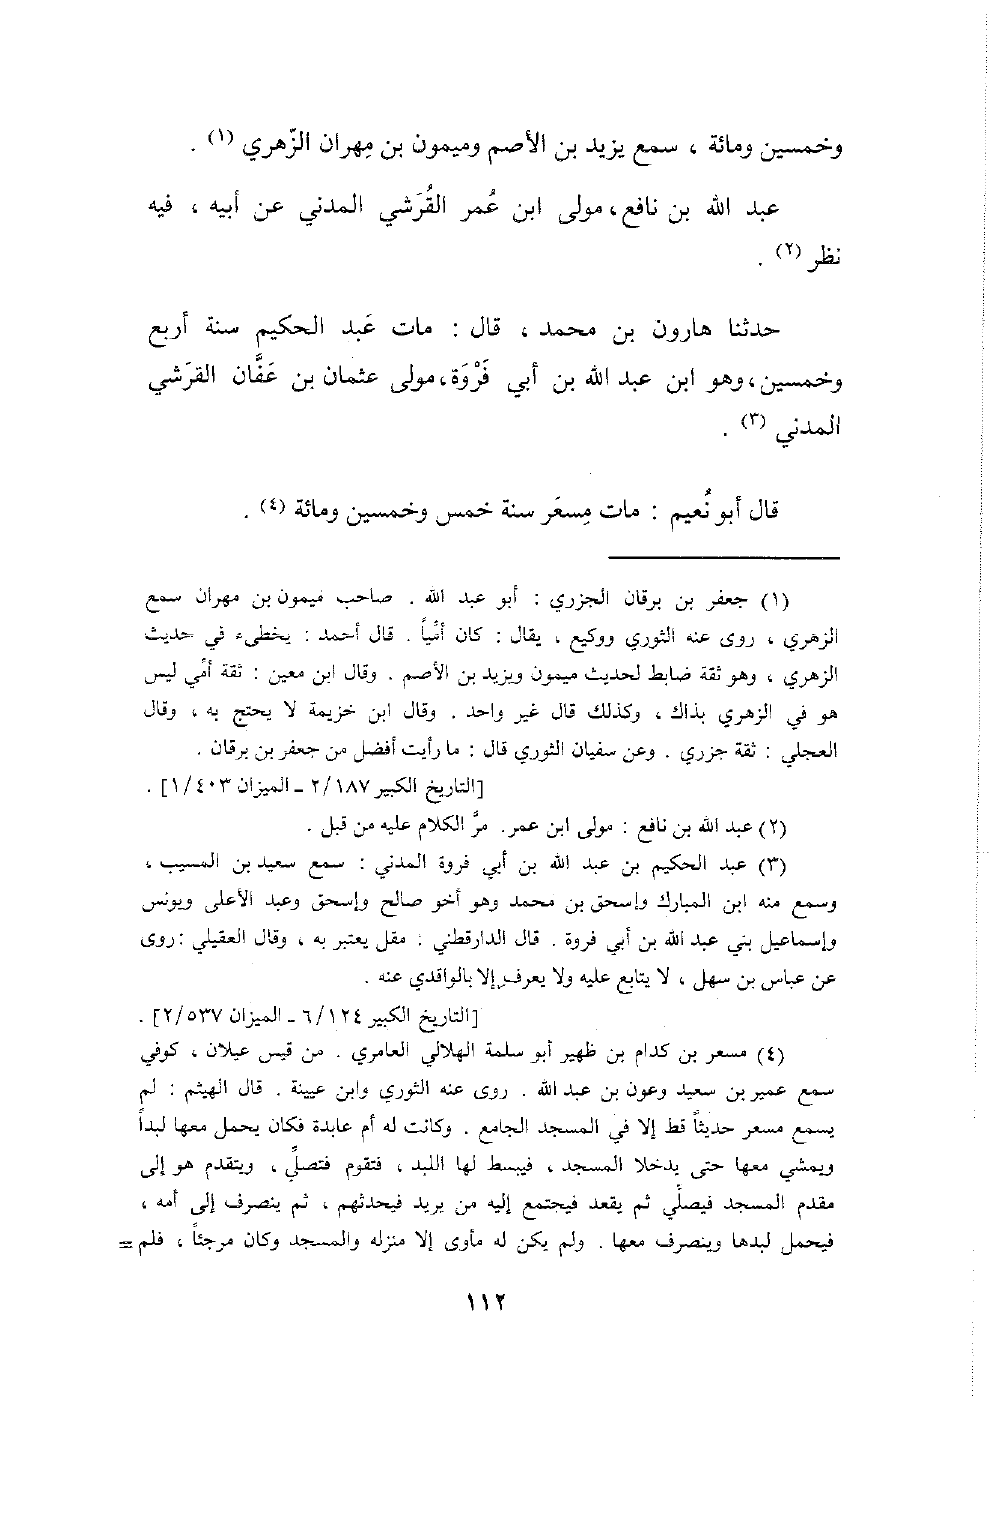 وخمسين ومائة ، سمع يزيد بن الأصم وميمون بن مِهران الزّهري (١) .
عبد الله بن نافع، مولى ابن عُمر القُرَشي المدني عن أبيه ، فيه
نظر (٢) .
حدثنا هارون بن محمد ، قال : مات عَبد الحكيم سنة أربع
وخمسين، وهو ابن عبد الله بن أبي فَرْوَة، مولى عثمان بن عَفَّان القرَشي
المدني (٣) .
قال أبو نُعيم : مات مِسعَر سنة خمس وخمسين ومائة (٤) .
(١) جعفر بن برقان الجزري : أبو عبد الله . صاحب ميمون بن مهران سمع
الزهري ، روى عنه الثوري ووكيع ، يقال : كان أمّياً . قال أحمد : يخطىء في حديث
الزهري ، وهو ثقة ضابط لحديث ميمون ويزيد بن الأصم . وقال ابن معين : ثقة أمّي ليس
هو في الزهري بذاك ، وكذلك قال غير واحد . وقال ابن خزيمة لا يحتج به ، وقال
العجلي : ثقة جزري . وعن سفيان الثوري قال : ما رأيت أفضل من جعفر بن برقان .
[التاريخ الكبير ٢/١٨٧ ـ الميزان ١/٤٠٣] .
(٢) عبد الله بن نافع : مولى ابن عمر. مرَّ الكلام عليه من قبل .
(٣) عبد الحكيم بن عبد الله بن أبي فروة المدني : سمع سعيد بن المسيب ،
وسمع منه ابن المبارك وإسحق بن محمد وهو أخو صالح وإسحق وعبد الأعلى ويونس
وإسماعيل بني عبد الله بن أبي فروة . قال الدارقطني : مقل يعتبر به ، وقال العقيلي : روى
عن عباس بن سهل ، لا يتابع عليه ولا يعرف إلا بالواقدي عنه .
[التاريخ الكبير ٦/١٢٤ ـ الميزان ٢/٥٣٧] .
(٤) مسعر بن كدام بن ظهير أبو سلمة الهلالي العامري . من قيس عيلان ، كوفي
سمع عمير بن سعيد وعون بن عبد الله . روى عنه الثوري وابن عيينة . قال الهيثم : لم
يسمع مسعر حديثاً قط إلا في المسجد الجامع . وكانت له أم عابدة فكان يحمل معها لبداً
ويمشي معها حتى يدخلا المسجد ، فيبسط لها اللبد ، فتقوم فتصلّي ، ويتقدم هو إلى
مقدم المسجد فيصلّي ثم يقعد فيجتمع إليه من يريد فيحدثهم ، ثم ينصرف إلى أمه ،
فيحمل لبدها وينصرف معها . ولم يكن له مأوى إلا منزله والمسجد وكان مرجئاً ، فلم =
١١٢